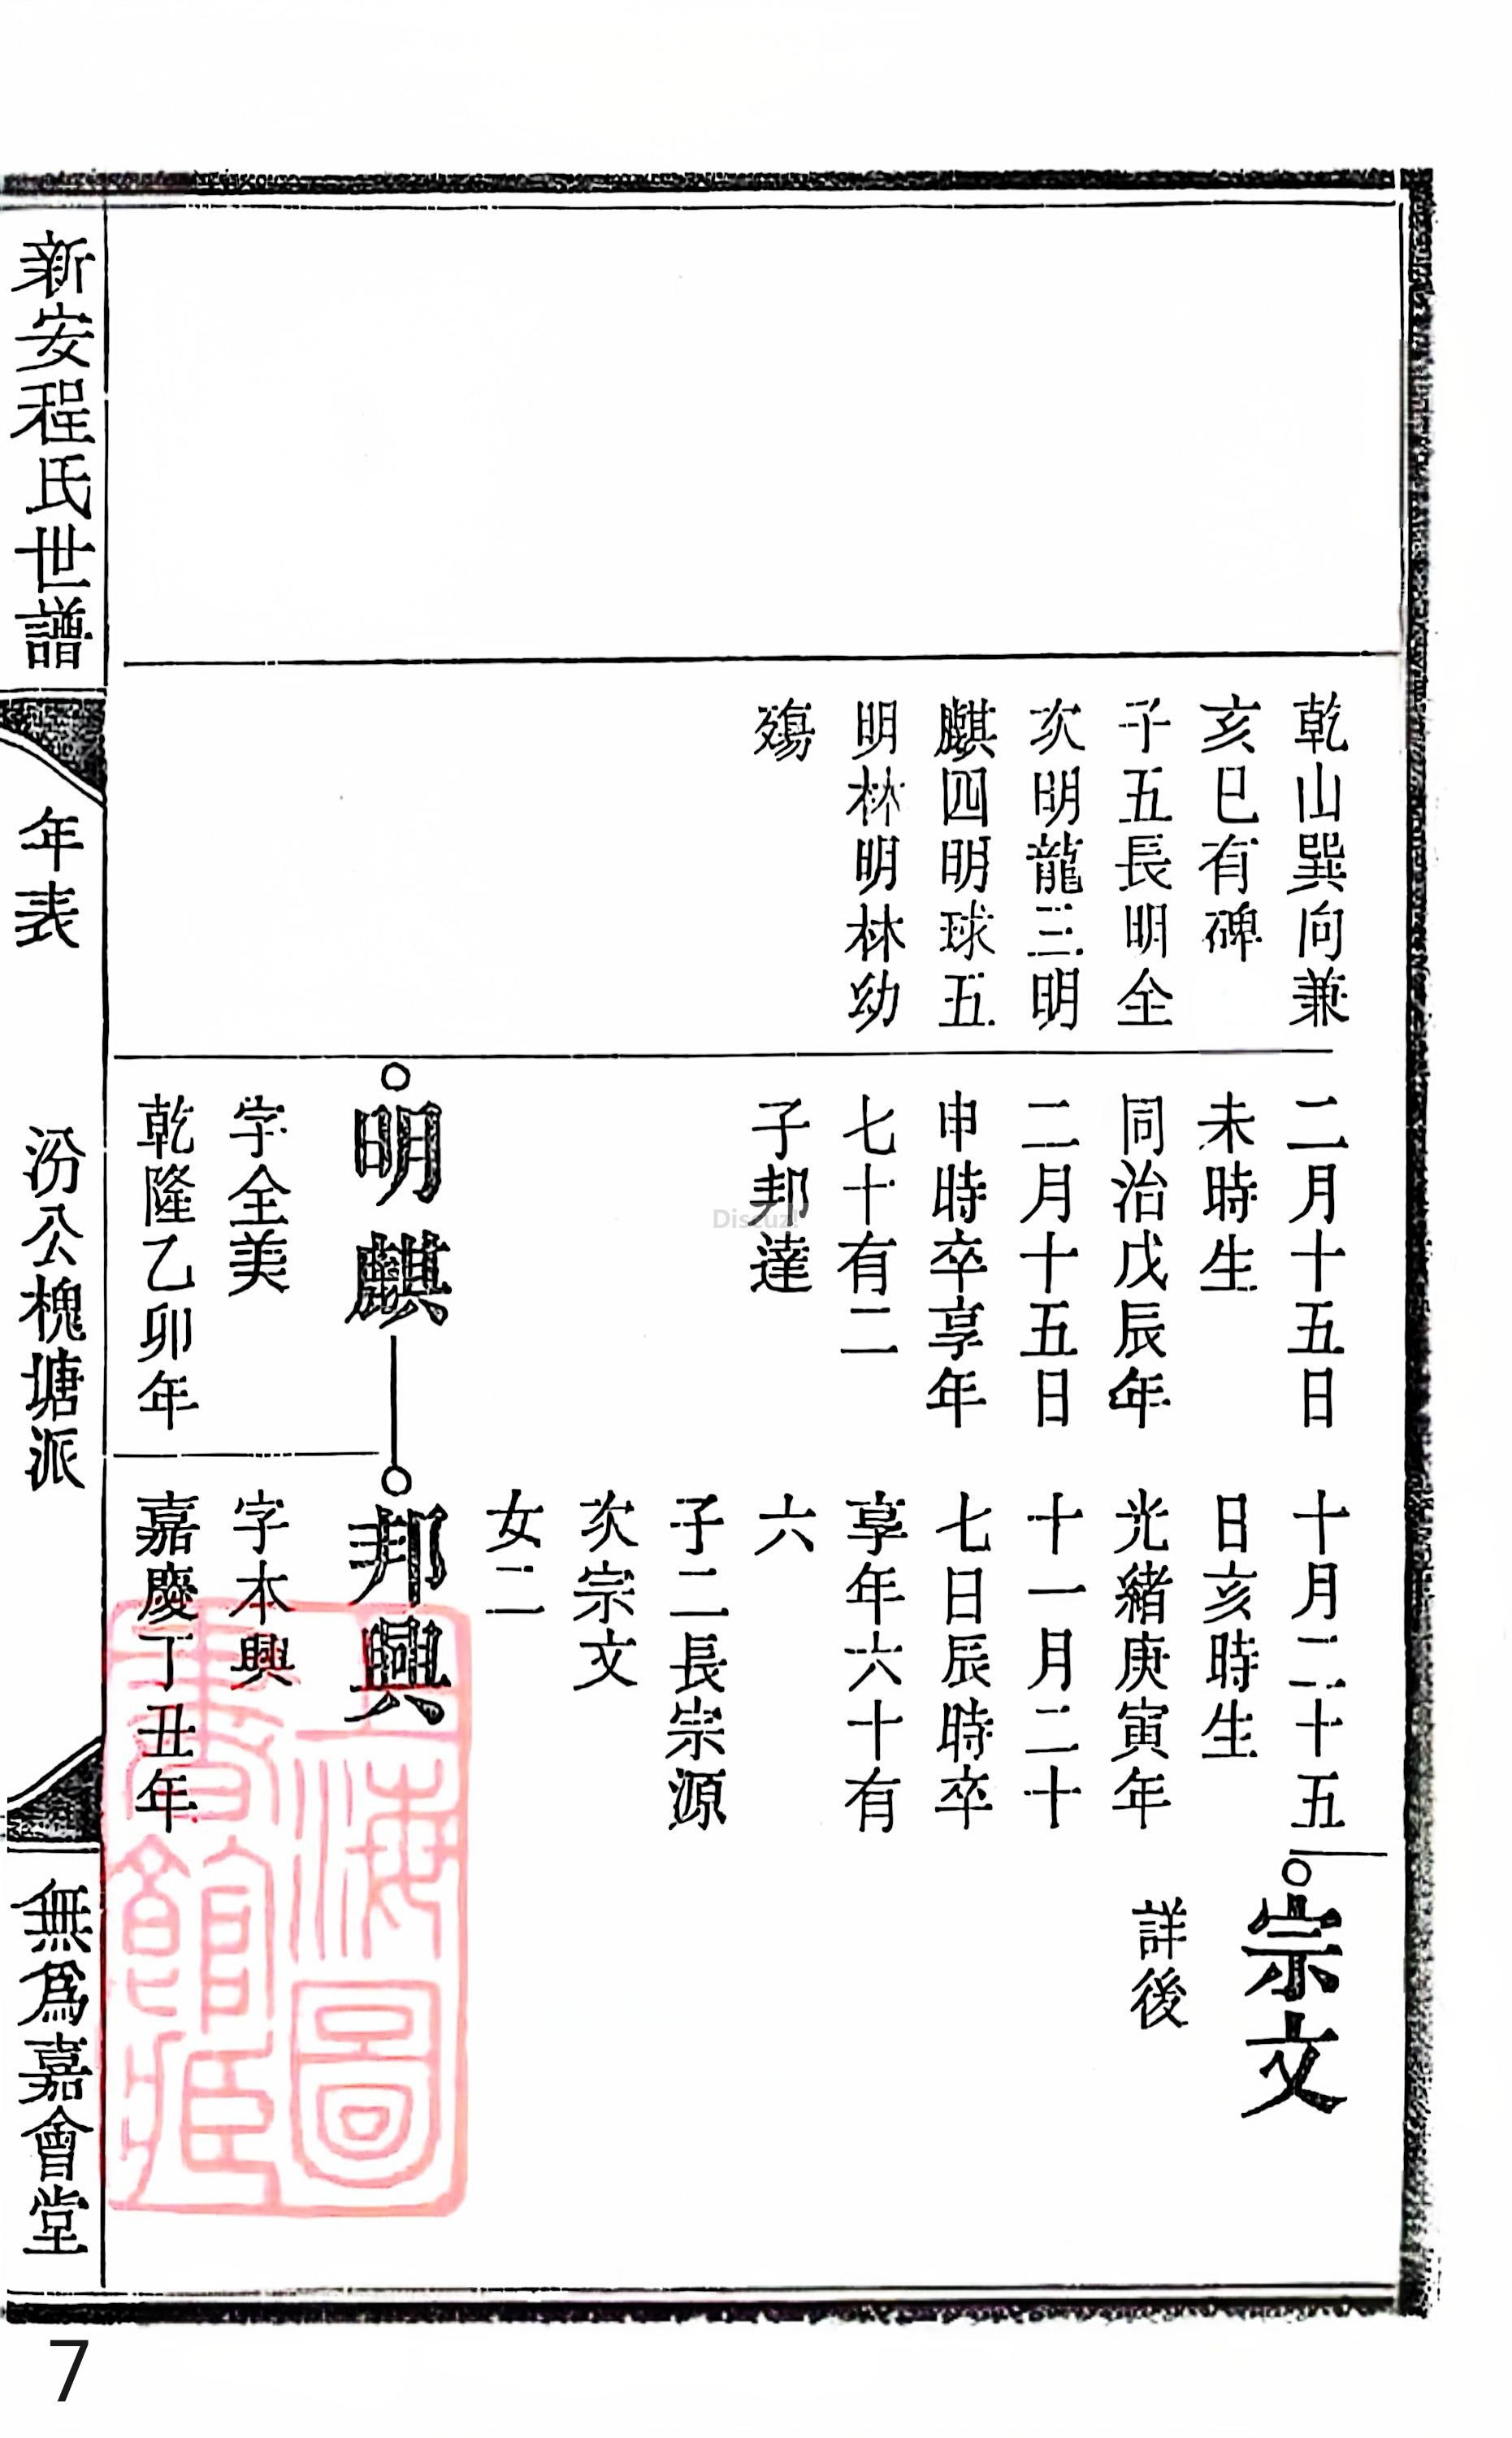 乾山巽向兼
亥巳有碑
子五長明全
次明龍三明
麒四明球五
明林明林幼
殤
二月十五日
未時生
同治戊辰年
二月十五日
申時卒享年
七十有二
子邦達
明麒
字全美
乾隆乙卯年
十月二十五
日亥時生
光緒庚寅年
十一月二十
七日辰時卒
享年六十有
六
子二長宗源
次宗文
女二
邦興
字本興
嘉慶丁丑年
宗文
詳後
新安程氏世譜
年表
汾公槐塘派
無爲嘉會堂
上海圖
書館藏
Discuz!
7